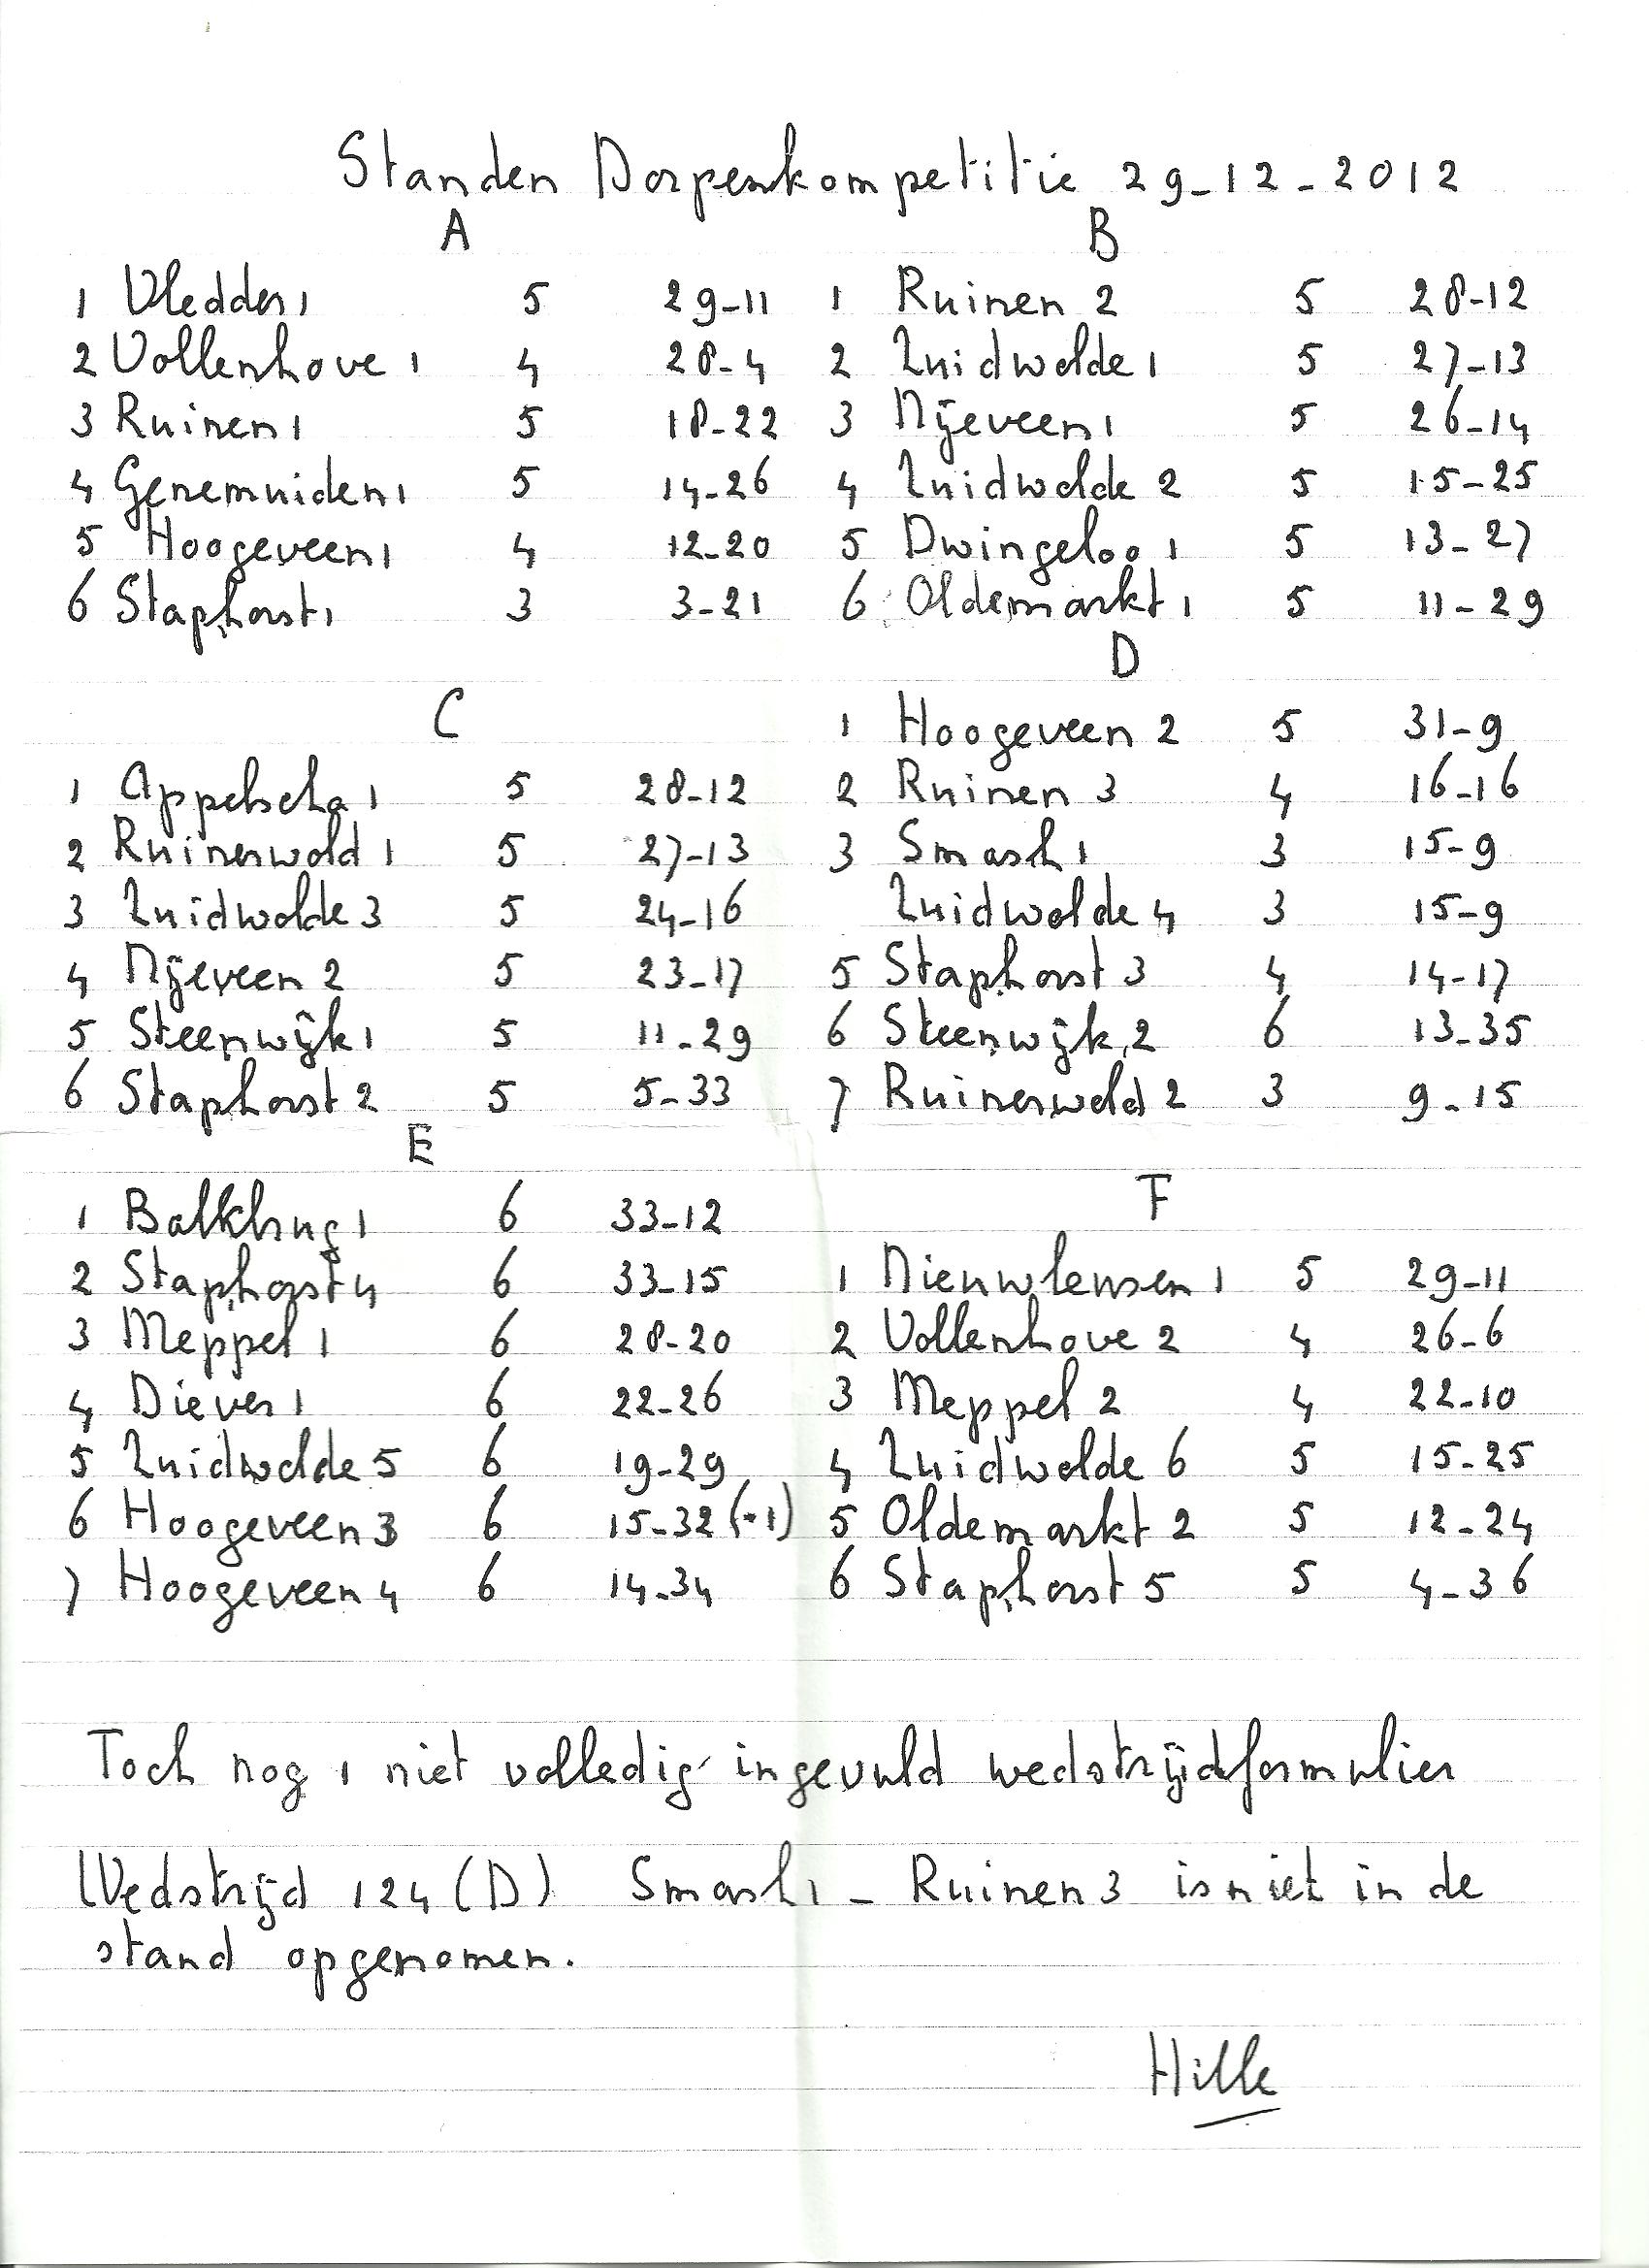 Standen Dorpenkompetitie 29-12-2012
A
1 Vledder 1 5 29-11
2 Vollenhove 1 4 28-4
3 Ruinen 1 5 18-22
4 Genemuiden 1 5 14-26
5 Hoogeveen 1 4 12-20
6 Staphorst 1 3 3-21
B
1 Ruinen 2 5 28-12
2 Zuidwolde 1 5 27-13
3 Nijeveen 1 5 26-14
4 Zuidwolde 2 5 15-25
5 Dwingeloo 1 5 13-27
6 Oldemarkt 1 5 11-29
C
1 Appelscha 1 5 28-12
2 Ruinerwold 1 5 27-13
3 Zuidwolde 3 5 24-16
4 Nijeveen 2 5 23-17
5 Steenwijk 1 5 11-29
6 Staphorst 2 5 5-33
D
1 Hoogeveen 2 5 31-9
2 Ruinen 3 4 16-16
3 Smash 1 3 15-9
Zuidwolde 4 3 15-9
5 Staphorst 3 4 14-17
6 Steenwijk 2 6 13-35
7 Ruinerwold 2 3 9-15
E
1 Balkbrug 1 6 33-12
2 Staphorst 4 6 33-15
3 Meppel 1 6 28-20
4 Diever 1 6 22-26
5 Zuidwolde 5 6 19-29
6 Hoogeveen 3 6 15-32 (-1)
7 Hoogeveen 4 6 14-34
F
1 Nieuwleusen 1 5 29-11
2 Vollenhove 2 4 26-6
3 Meppel 2 4 22-10
4 Zuidwolde 6 5 15-25
5 Oldemarkt 2 5 12-24
6 Staphorst 5 5 4-36
Toch nog 1 niet volledig ingevuld wedstrijdformulier
Wedstrijd 124 (D) Smash 1 - Ruinen 3 is niet in de
stand opgenomen.
Hille